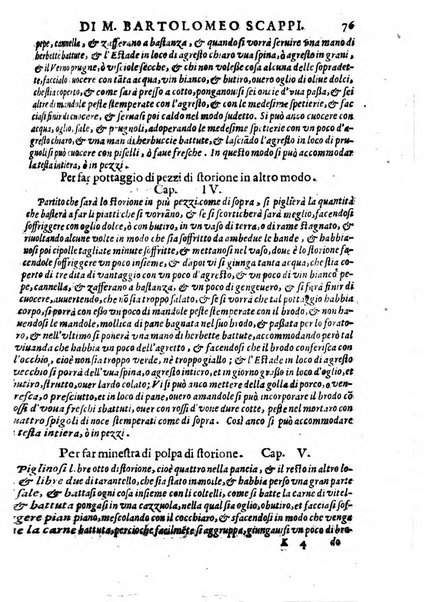 DI M. BARTOLOMEO SCAPPI. 76
pepe, cannella, & zafferano a bastanza, & quando si vorrà seruire una mano di
herbette battute, & l'Estade in loco di agresto chiaro vua spina, ò agresto in grani,
& il Verno prugne, ò visciole secche, & chi non volesse cosa alcuna delle sopradet-
te, faccialo cuocere con tãta acqua, vin bianco, & butiro, ouero oglio di oliue dolci,
che stia coperto, & sarà presso a cotto, pongonausi sei oncie di vua passa, & sei
altre di mandole peste stemperate con agresto, & con le medesime spetierie, & fac
ciasi finir di cuocere, & seruasi caldo nel modo sudetto. Si può anco cuocere con
acqua, oglio, sale, & prugnoli, adoperando le medesime spetierie con vn poco d'a-
gresto chiaro, & vna man di herbuccie battute, & lasciãdo l'agresto in loco di pru-
gnoli si può cuocere con piselli, ò faue fresche. In questo modo si può accommodar
la testa intiera, ò in pezzi.
Per far pottaggio di pezzi di storione in altro modo.
Cap. IV.
Partito che sarà lo storione in più pezzi come di sopra, si piglierà la quantità
che basterà a far li piatti che vorremo, & se si scorticherà sarà meglio, facendosi
soffriggere con oglio dolce, ò con butiro, in un vaso di terra, ò di rame stagnato, &
riuoltando alcune volte in modo che sia soffritto da ambedue le bande, & habbia-
nosi poi cipolle tagliate minute soffritte, & mettanosi nel vaso, doue è lo storione
con vna mano d'uua passa insieme, & dapoi vi si giunga tanta acqua, che stia co-
perto di tre dita di vantaggio con vn poco d'agresto, & vn poco di vin bianco pe-
pe, cannella, & zafferano a bastanza, & vn poco di gengeuero, & si farà finir di
cuocere, auuertendo, che nõ sia troppo salato, & acciòche tal pottaggio habbia
corpo, ponganouisi dentro mandole peste stemperate con il brodo, & non hauen-
dosi mandole, mollica di pane bagnata nel suo brodo, & passata per lo forato-
ro, & nell'ultimo si ponerà vna mano di herbette battute, accommodando però tal
viuanda che habbia vn poco dell'agretto, & che il brodo conferisca con
l'occhio, cioè non sia troppo verde, nè troppo giallo; & l'Estade in loco di agresto
vecchio si porrà dell'vua spina, ò agresto intiero, & in giorno grasso in loco d'oglio, et
butiro, strutto, ouer lardo colato; Vi si può anco mettere della golla di porco, ò ven-
tresca, ò presciutto, et in loco di pane, ouero amandole si può incorporare il brodo cõ
rossi d'oua freschi sbattuti, ouer con rossi d'voue dure cotte, peste nel mortaro con
quattro spigoli di noci stemperate con esso brodo. Così anco si può accommodare
la testa intiera, ò in pezzi.
Per far minestra di polpa di storione. Cap. V.
Piglinosi libre otto di storione, cioè quattro nella pancia, & il resto in altro lo-
co, & libre due di tarantello, che sia stato in molle, & habbia persa gran parte
del sale, & battasi ogni cosa insieme con li coltelli, come si batte la carne di vitel-
la, & battuta pongasi in una cazzuola, nella qual sia vn poco d'oglio, & facciasi
soffriggere pian piano, mescolando con il cocchiaro, & sfacendosi in modo che venga
come la carne battuta, percioche facilmẽte si aggruppa, giungasi vn poco di bro-
K 4 do